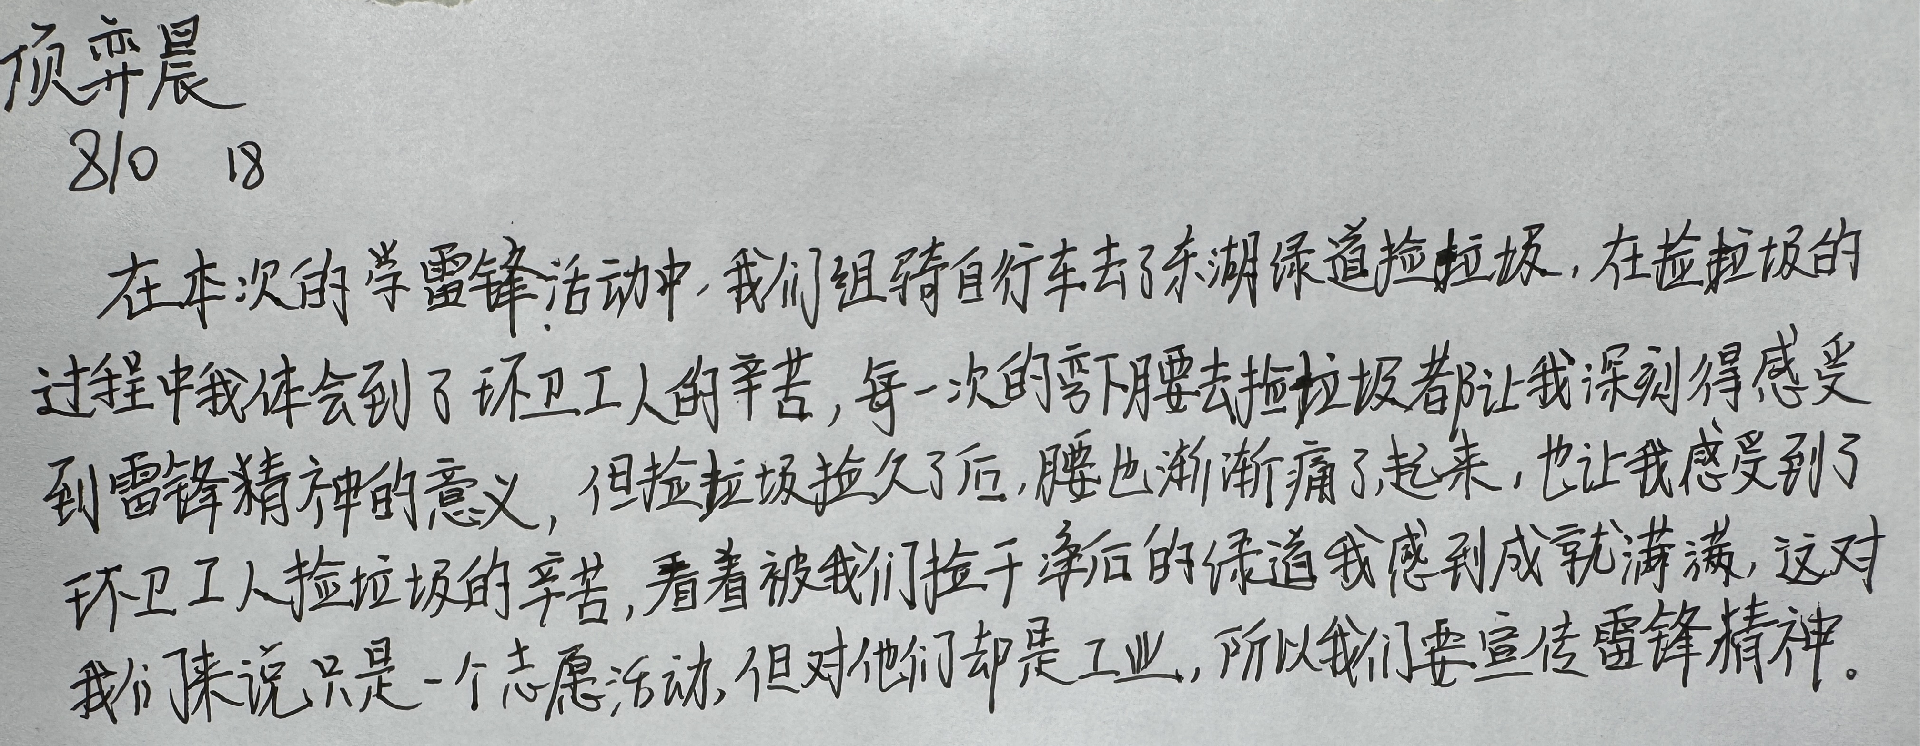 项弈晨
810 18
在本次的学雷锋活动中,我们组骑自行车去了东湖绿道捡垃圾,在捡垃圾的
过程中我体会到了环卫工人的辛苦,每一次的弯下腰去捡垃圾都让我深刻得感受
到雷锋精神的意义,但捡垃圾捡久了后,腰也渐渐痛了起来,也让我感受到了
环卫工人捡垃圾的辛苦,看着被我们捡干净后的绿道我感到成就满满,这对
我们来说只是一个志愿活动,但对他们却是工业,所以我们要宣传雷锋精神。